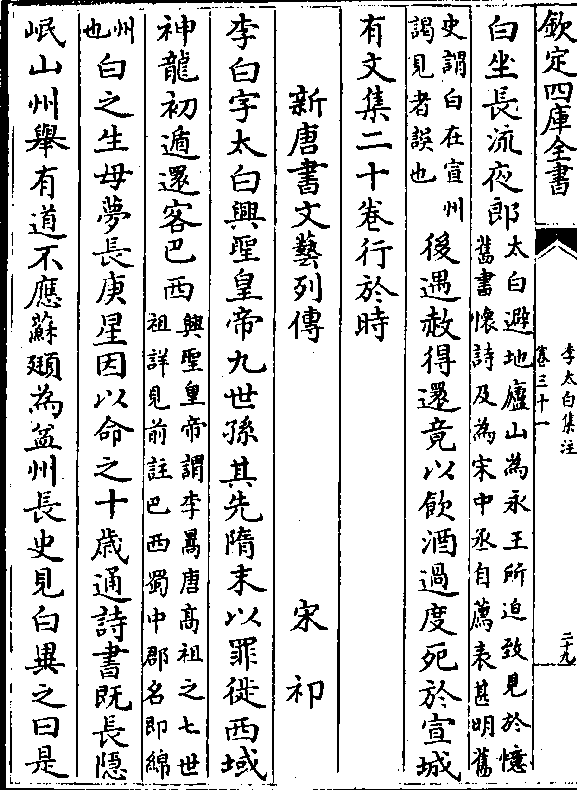 欽定四庫全書
李太白集注
卷三十一
二十九
白坐長流夜郎太白避地廬山為永王所迫致見於憶
舊書懷詩及為宋中丞自薦表甚明舊
史謂白在宣州
謁見者誤也後遇赦得還竟以飲酒過度死於宣城
有文集二十卷行於時
新唐書文藝列傳　宋祁
李白字太白興聖皇帝九世孫其先隋末以罪徙西域
神龍初遁還客巴西興聖皇帝謂李暠唐髙祖之七世
祖詳見前註巴西蜀中郡名即綿
州
也白之生母夢長庚星因以命之十歳通詩書既長隱
岷山州舉有道不應蘇頲為益州長史見白異之曰是